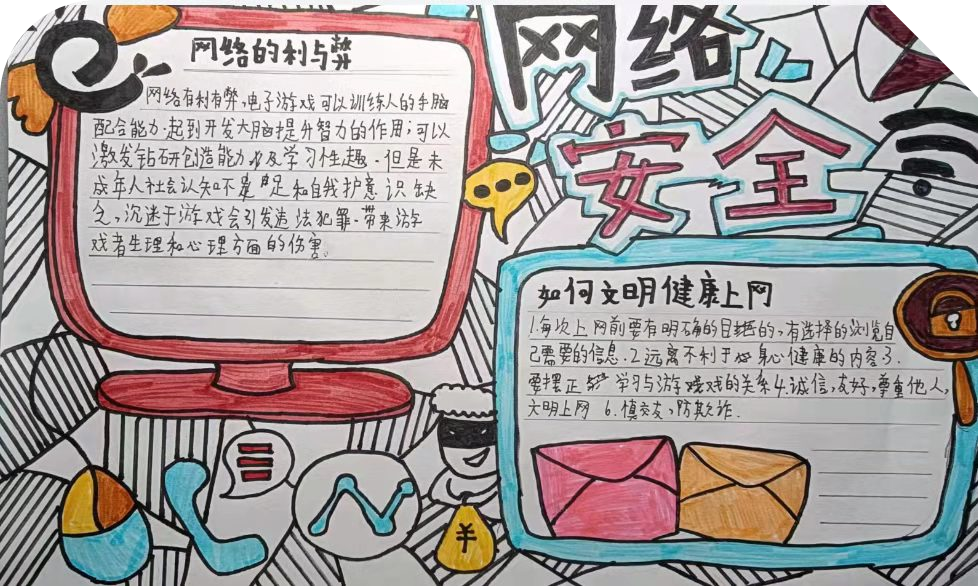 网络
安全
网络的利与弊
网络有利有弊,电子游戏可以训练人的手脑
配合能力.起到开发大脑提升智力的作用;可以
激发钻研创造能力以及学习性趣.但是未
成年人社会认知不足和自我护意识缺
乏,沉迷于游戏会引发违法犯罪.带来游
戏者生理和心理方面的伤害。
如何文明健康上网
1.每次上网前要有明确的目的,有选择的浏览自
己需要的信息.2远离不利于身心健康的内容3.
要摆正学习与游戏的关系4.诚信,友好,尊重他人,
文明上网 6.慎交友,防欺诈.
¥